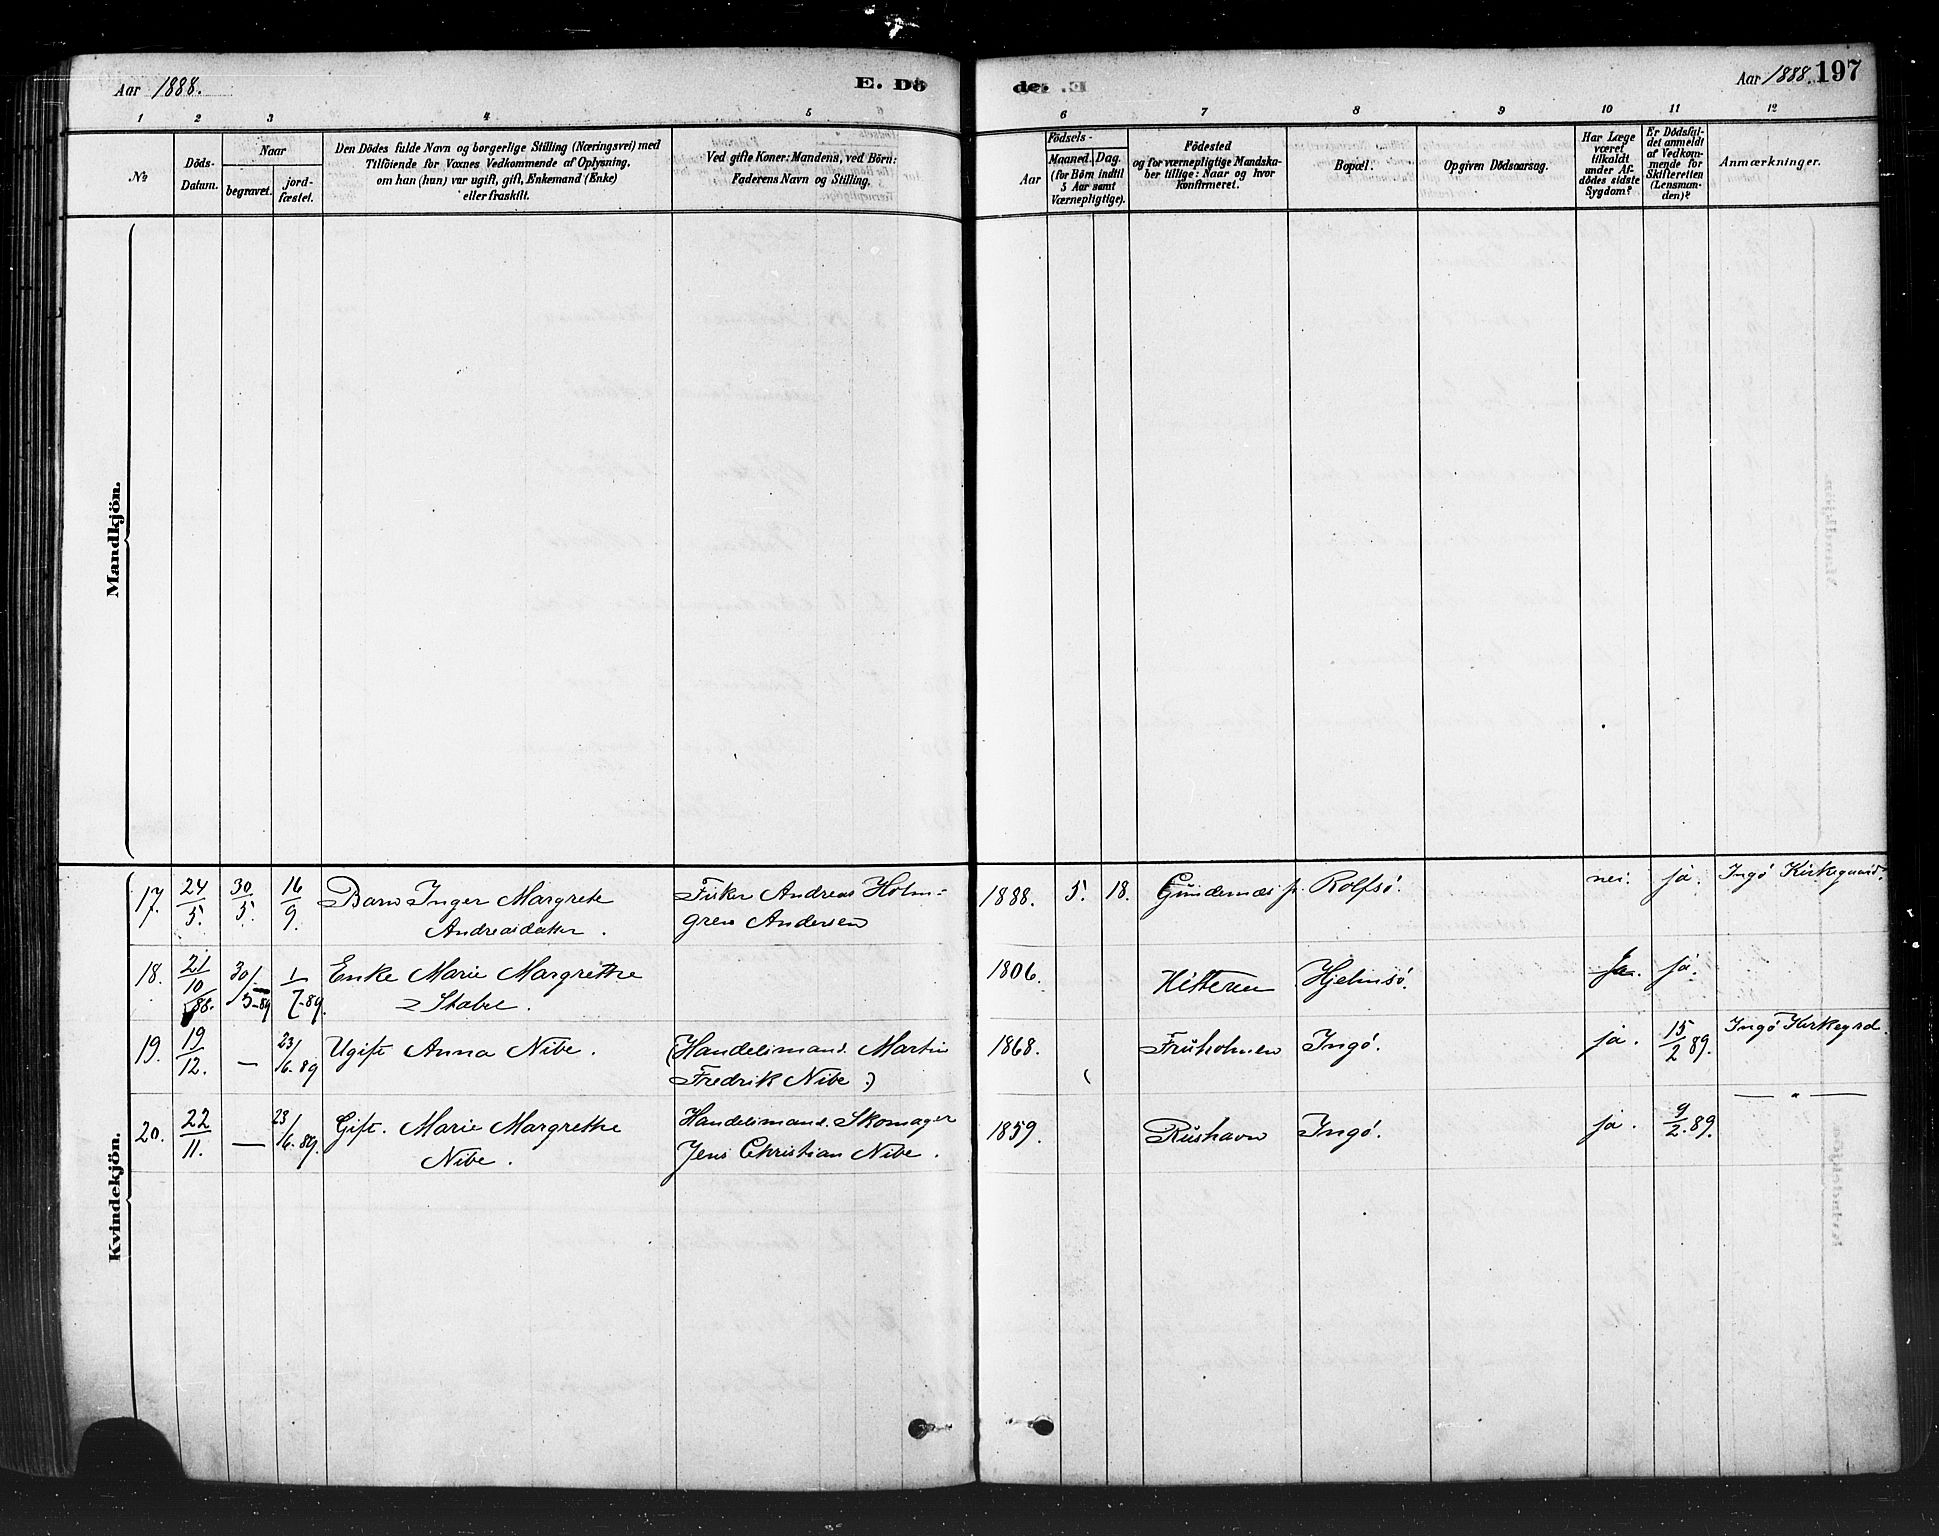 Aar 1888.
E. Dö
de.
Aar 1888. 197
1 2 3 4 5 6 7 8 9 10 11 12
№
Döds-
Datum.
Naar
begravet.
jord-
fæstet.
Den Dödes fulde Navn og borgerlige Stilling (Næringsvei) med
Tilföiende for Voxnes Vedkommende af Oplysning,
om han (hun) var ugift, gift, Enkemand (Enke)
eller fraskilt.
Ved gifte Koner: Mandens, ved Börn:
Faderens Navn og Stilling.
Födsels-
Aar
Maaned. Dag.
(for Börn indtil
5 Aar samt
Værnepligtige).
Födested
og for værnepligtige Mandska-
ber tillige: Naar og hvor
konfirmeret.
Bopæl.
Opgiven Dödsaarsag.
Har Læge
været
tilkaldt
under Af-
dödes sidste
Sygdom?
Er Dödsfal-
det anmeldt
af Vedkom-
mende for
Skifteretten
(Lensman-
den)?
Anmærkninger.
Mandkjön.
Kvindekjön.
17. 24/5. 30/5. 16/9. Barn Inger Margrete Fisker Andreas Holm= 1888. 5. 18. Rolfsö. nei. ja. Ingö Kirkegaard.
Andreasdatter. gren Andersen
18. 21/10 88. 30/5-89 1/7-89. Enke Marie Margrethe 1806. Hitteren Hjelmsö. ja. ja.
Stabel.
19. 19/12. — 23/6-89 Ugift Anna Nibe. (Handelsmand. Martin 1868. Fruholmen Ingö. ja. 15/2 89. Ingö Kirkegrd.
Fredrik Nibe.)
20. 22/11. — 23/6-89. Gift. Marie Margrethe Handelsmand. Skomager 1859. Rushavn Ingö. ja. 9/2.89. — " —
Nibe. Jens Christian Nibe.